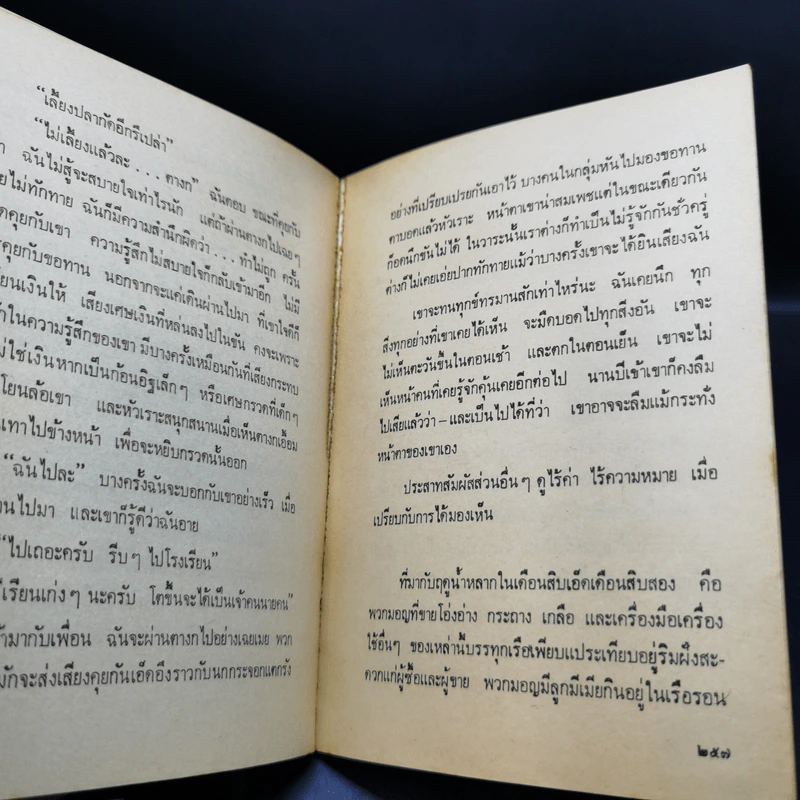 “เลี้ยงปลากัดอีกรึเปล่า”
“ไม่เลี้ยงแล้วละ ... ตางก” ฉันตอบ ขณะที่คุยกับ
ฉันไม่สู้จะสบายใจเท่าไรนัก แต่ถ้าผ่านตางกไปเฉยๆ
ไม่ทักทาย ฉันก็มีความสำนึกผิดว่า ... ทำไม่ถูก ครั้น
คุยกับเขา ความรู้สึกไม่สบายใจก็กลับเข้ามาอีก ไม่มี
คุยกับขอทาน นอกจากจะแค่เดินผ่านไปมา ที่เขาใจดีก็
เงินให้ เสียงเศษเงินที่หล่นลงไปในขัน คงจะเพราะ
ในความรู้สึกของเขา มีบางครั้งเหมือนกันที่เสียงกระทบ
ใช่เงินหากเป็นก้อนอิฐเล็กๆ หรือเศษกรวดที่เด็กๆ
โยนล้อเขา และหัวเราะสนุกสนานเมื่อเห็นตางกเอื้อม
ไปข้างหน้า เพื่อจะหยิบกรวดนั้นออก
“ฉันไปละ” บางครั้งฉันจะบอกกับเขาอย่างเร็ว เมื่อ
ไปมา และเขาก็รู้ดีว่าฉันอาย
“ไปเถอะครับ รีบๆ ไปโรงเรียน”
เรียนเก่งๆ นะครับ โตขึ้นจะได้เป็นเจ้าคนนายคน”
มากับเพื่อน ฉันจะผ่านตางกไปอย่างเฉยเมย พวก
จะส่งเสียงคุยกันเอ็ดอึงราวกับนกกระจอกแตกรัง
อย่างที่เปรียบเปรยกันเอาไว้ บางคนในกลุ่มหันไปมองขอทาน
ตาบอดแล้วหัวเราะ หน้าตาเขาน่าสมเพชแต่ในขณะเดียวกัน
ก็อดนึกขันไม่ได้ ในวาระนั้นเราต่างก็ทำเป็นไม่รู้จักกันชั่วครู่
ต่างก็ไม่เคยเอ่ยปากทักทายแม้ว่าบางครั้งเขาจะได้ยินเสียงฉัน
เขาจะทนทุกข์ทรมานสักเท่าไหร่นะ ฉันเคยนึก ทุก
สิ่งทุกอย่างที่เขาเคยได้เห็น จะมืดบอดไปทุกสิ่งอัน เขาจะ
ไม่เห็นตะวันขึ้นในตอนเช้า และตกในตอนเย็น เขาจะไม่
เห็นหน้าคนที่เคยรู้จักคุ้นเคยอีกต่อไป นานปีเข้าเขาก็คงลืม
ไปเสียแล้วว่า – และเป็นไปได้ที่ว่า เขาอาจจะลืมแม้กระทั่ง
หน้าตาของเขาเอง
ประสาทสัมผัสส่วนอื่นๆ ดูไร้ค่า ไร้ความหมาย เมื่อ
เปรียบกับการได้มองเห็น
ที่มากับฤดูน้ำหลากในเดือนสิบเอ็ดเดือนสิบสอง คือ
พวกมอญที่ขายโอ่งอ่าง กระถาง เกลือ และเครื่องมือเครื่อง
ใช้อื่นๆ ของเหล่านี้บรรทุกเรือเพียบแประเทียบอยู่ริมฝั่งสะ-
ดวกแก่ผู้ซื้อและผู้ขาย พวกมอญมีลูกมีเมียกินอยู่ในเรือรอน
๒๕๗